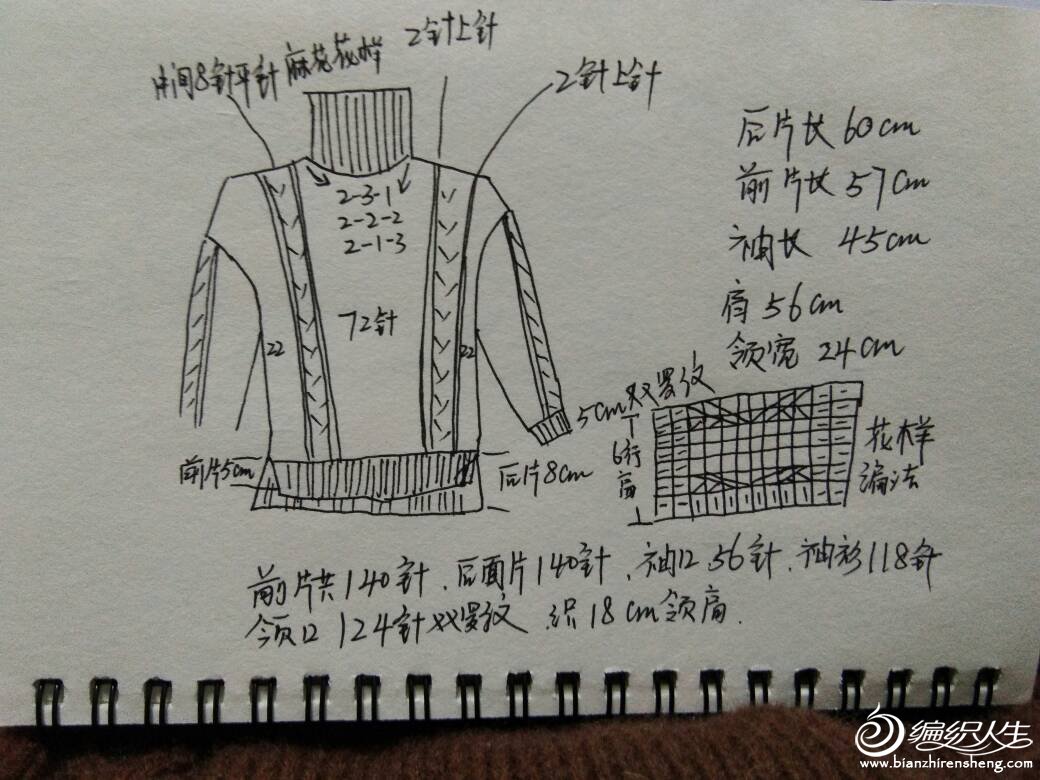 中间8针平针麻花花样
2针上针
2针上针
后片长60cm
前片长57cm
袖长 45cm
肩56cm
领宽24cm
2-3-1
2-2-2
2-1-3
72针
22
22
5cm双罗纹
6行高
花样
编法
前片5cm
后片8cm
前片共140针、后面片140针、袖口56针、袖衫118针
领口124针双罗纹 织18cm领高.
编织人生
www.bianzhirensheng.com